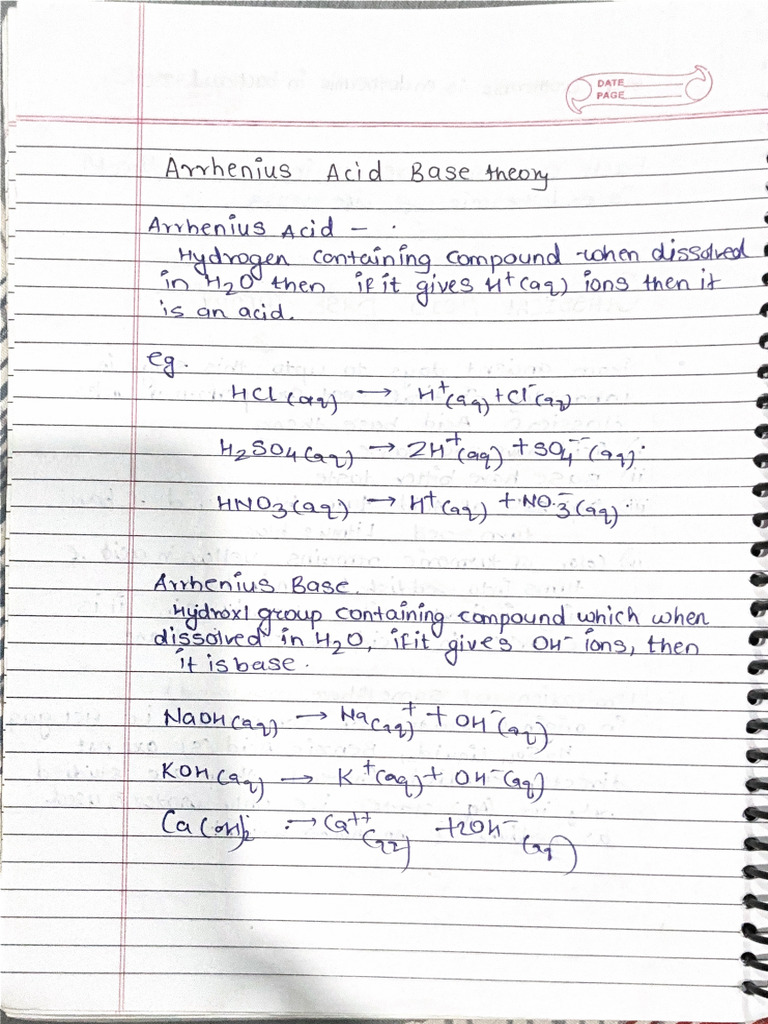 DATE
PAGE
Arrhenius Acid Base theory
Arrhenius Acid –
Hydrogen containing compound when dissolved
in H2O then if it gives H+(aq) ions then it
is an acid.
eg.
HCl(aq) → H+(aq) + Cl-(aq)
H2SO4(aq) → 2H+(aq) + SO4--(aq).
HNO3(aq) → H+(aq) + NO3-(aq).
Arrhenius Base.
Hydroxl group containing compound which when
dissolved in H2O, if it gives OH- ions, then
it is base.
NaOH(aq) → Na(aq)+ + OH-(aq)
KOH(aq) → K+(aq) + OH-(aq)
Ca(OH)2 → Ca++(aq) + 2OH-(aq)